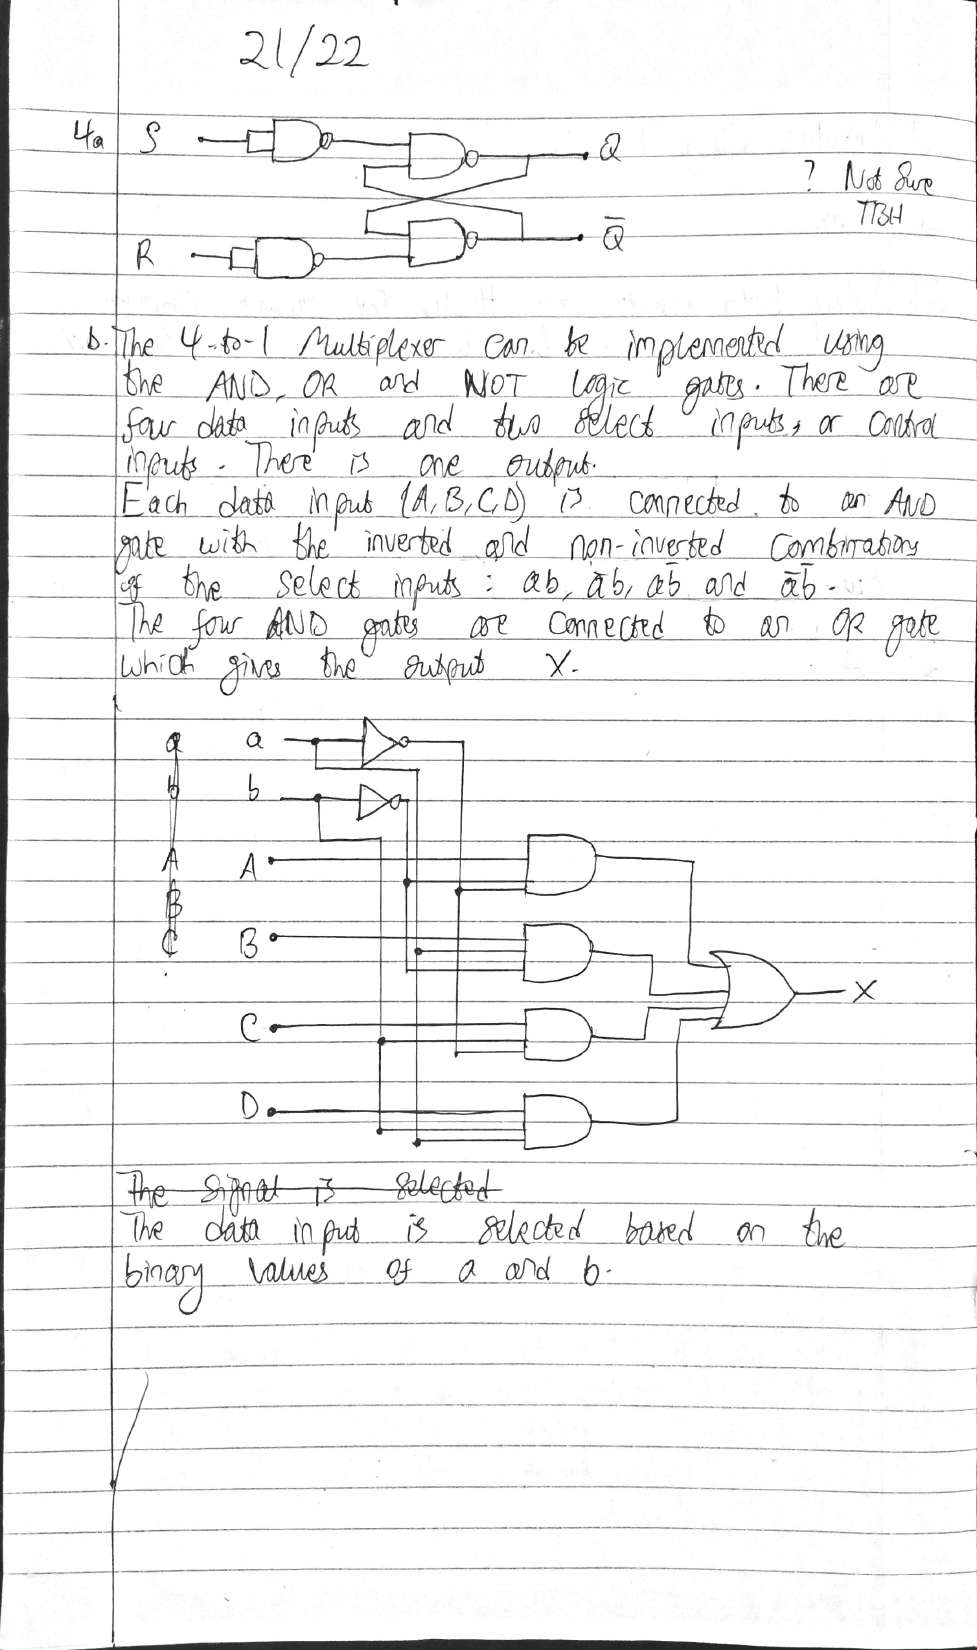 21/22
4a S Q
? Not Sure
TBH
R Q̅
b. The 4-to-1 Multiplexer can be implemented using
the AND, OR and NOT logic gates. There are
four data inputs and two select inputs, or control
inputs. There is one output.
Each data input (A, B, C, D) is connected to an AND
gate with the inverted and non-inverted combinations
of the select inputs : ab, a̅b, ab̅ and a̅b̅.
The four AND gates are connected to an OR gate
which gives the output X.
a a
b b
A A
B
C B
X
C
D
The signal is selected
The data input is selected based on the
binary values of a and b.